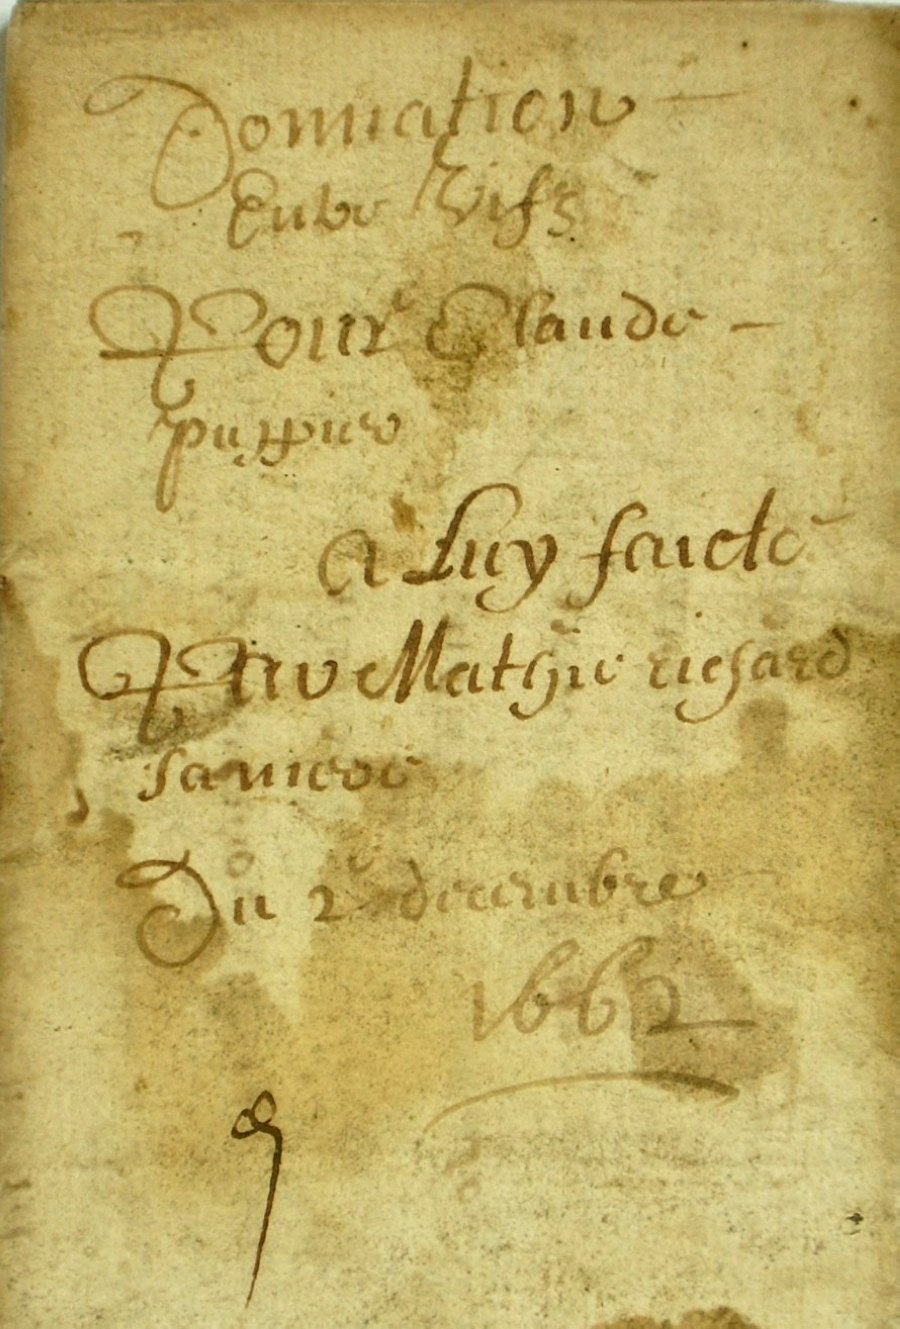 Donnation
Entre Vifz
Pour Claude
A Luy faicte
Par Mathie richard
sa mere
Du 2e decembre
1662